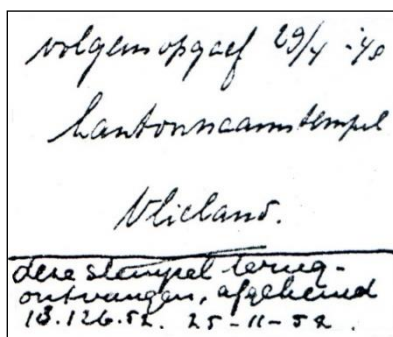 volgens opgaef 29/4 -'40
kantoornaamstempel
Vlieland.
deze stempel terug-
ontvangen, afgekeurd
13.126.52. 25-11-52.